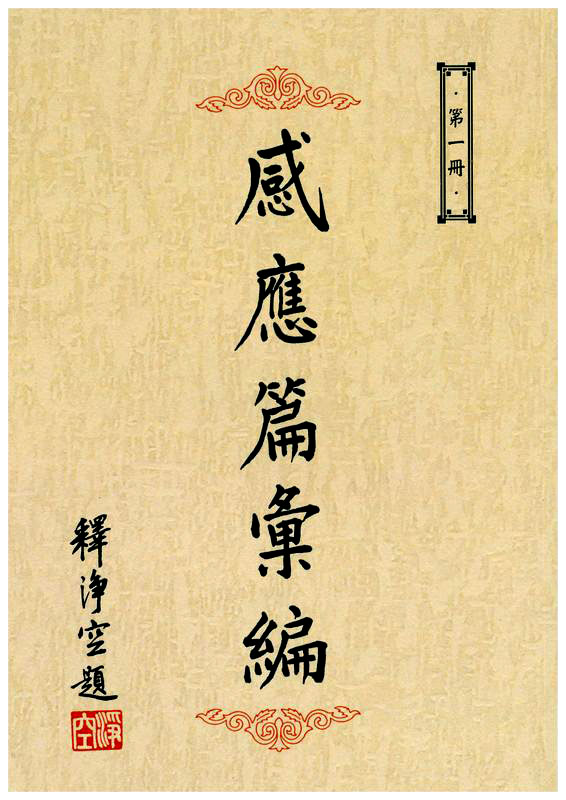 ·第一冊·
感應篇彙編
釋淨空題
淨空